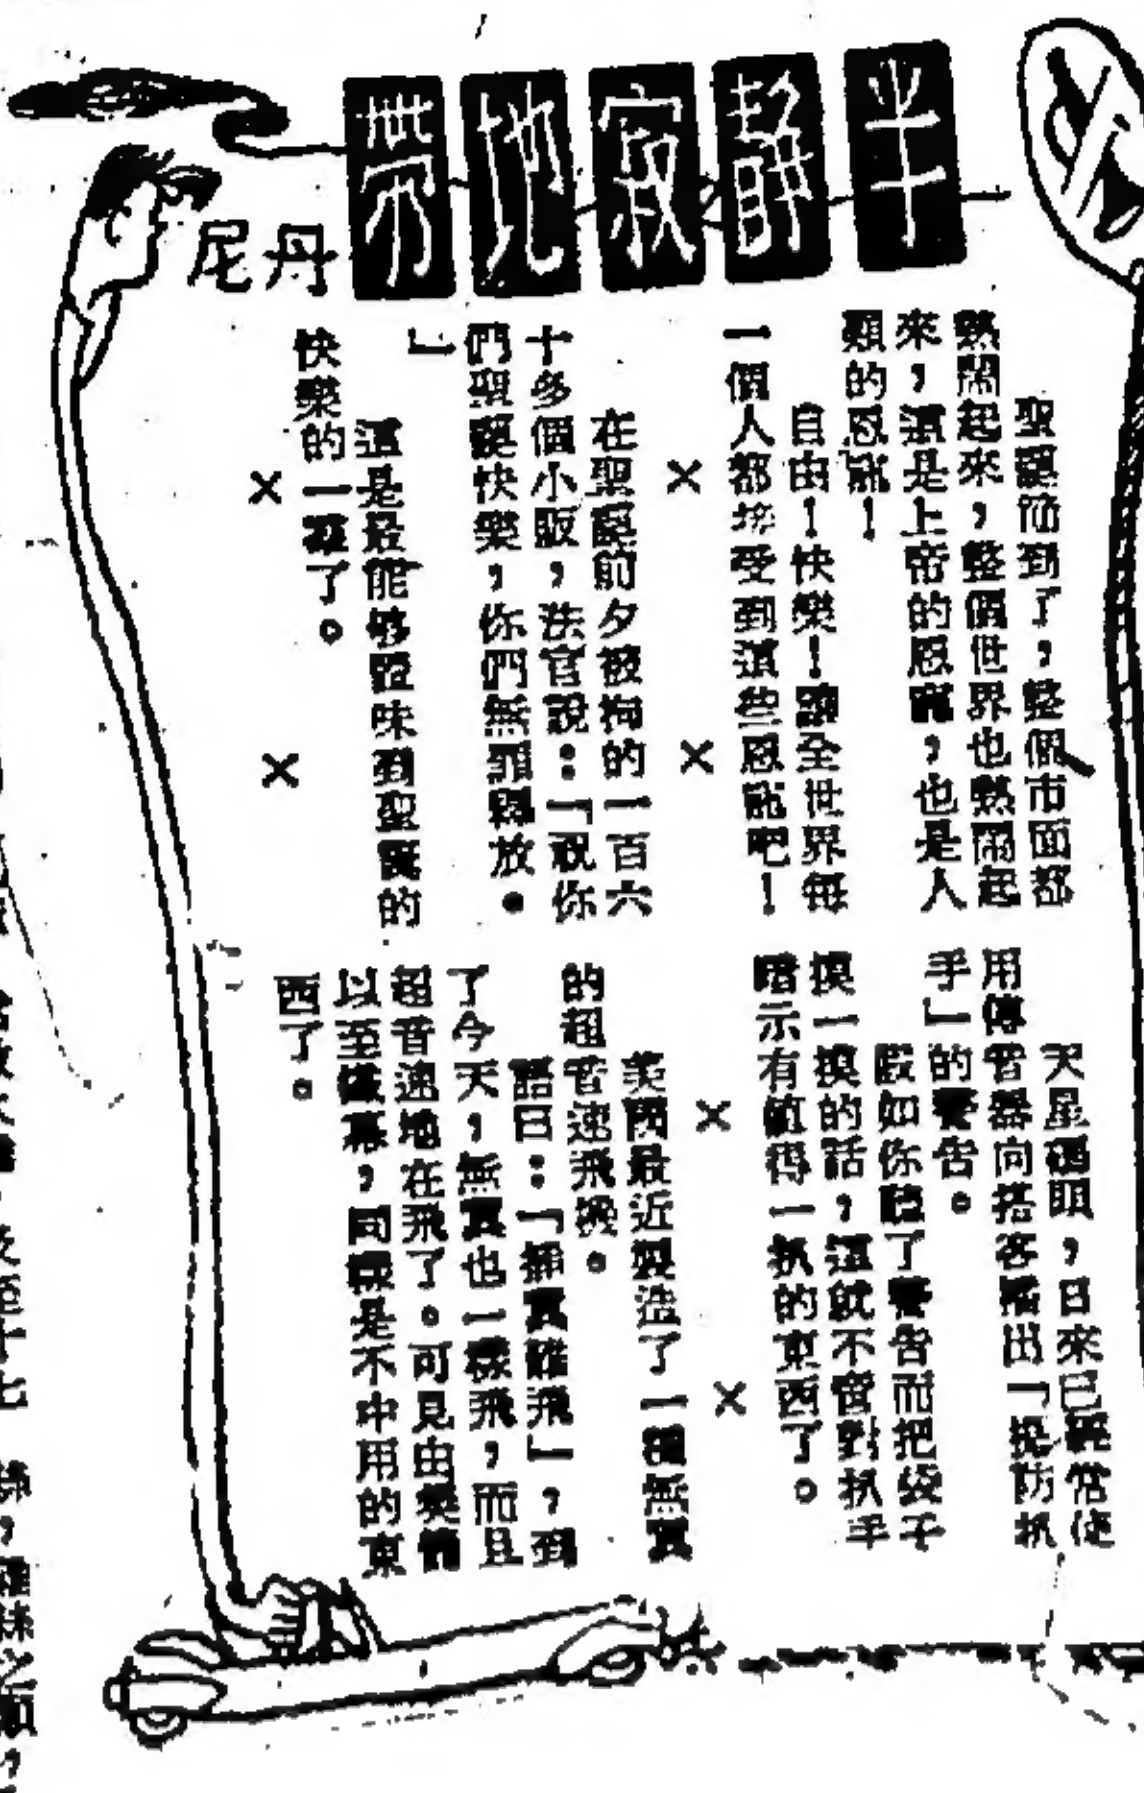 半靜寂地帶
丹尼
聖誕節到了，整個市面都
熱鬧起來，整個世界也熱鬧起
來，這是上帝的恩寵，也是人
類的恩賜！
自由！快樂！讓全世界每
一個人都接受到這些恩賜吧！
× ×
在聖誕前夕被拘的一百六
十多個小販，法官說：「祝你
們聖誕快樂，你們無罪釋放。
」
這是最能够體味到聖誕的
快樂的一羣了。
× ×
天星碼頭，日來已經常使
用傳音器向搭客播出「提防扒
手」的警告。
假如你聽了警告而把袋子
摸一摸的話，這就不啻對扒手
暗示有值得一扒的東西了。
× ×
美國最近製造了一種無翼
的超音速飛機。
語曰：「插翼難飛」，到
了今天，無翼也一樣飛，而且
超音速地在飛了。可見由
以至鐵幕，同樣是不中用的東
西了。